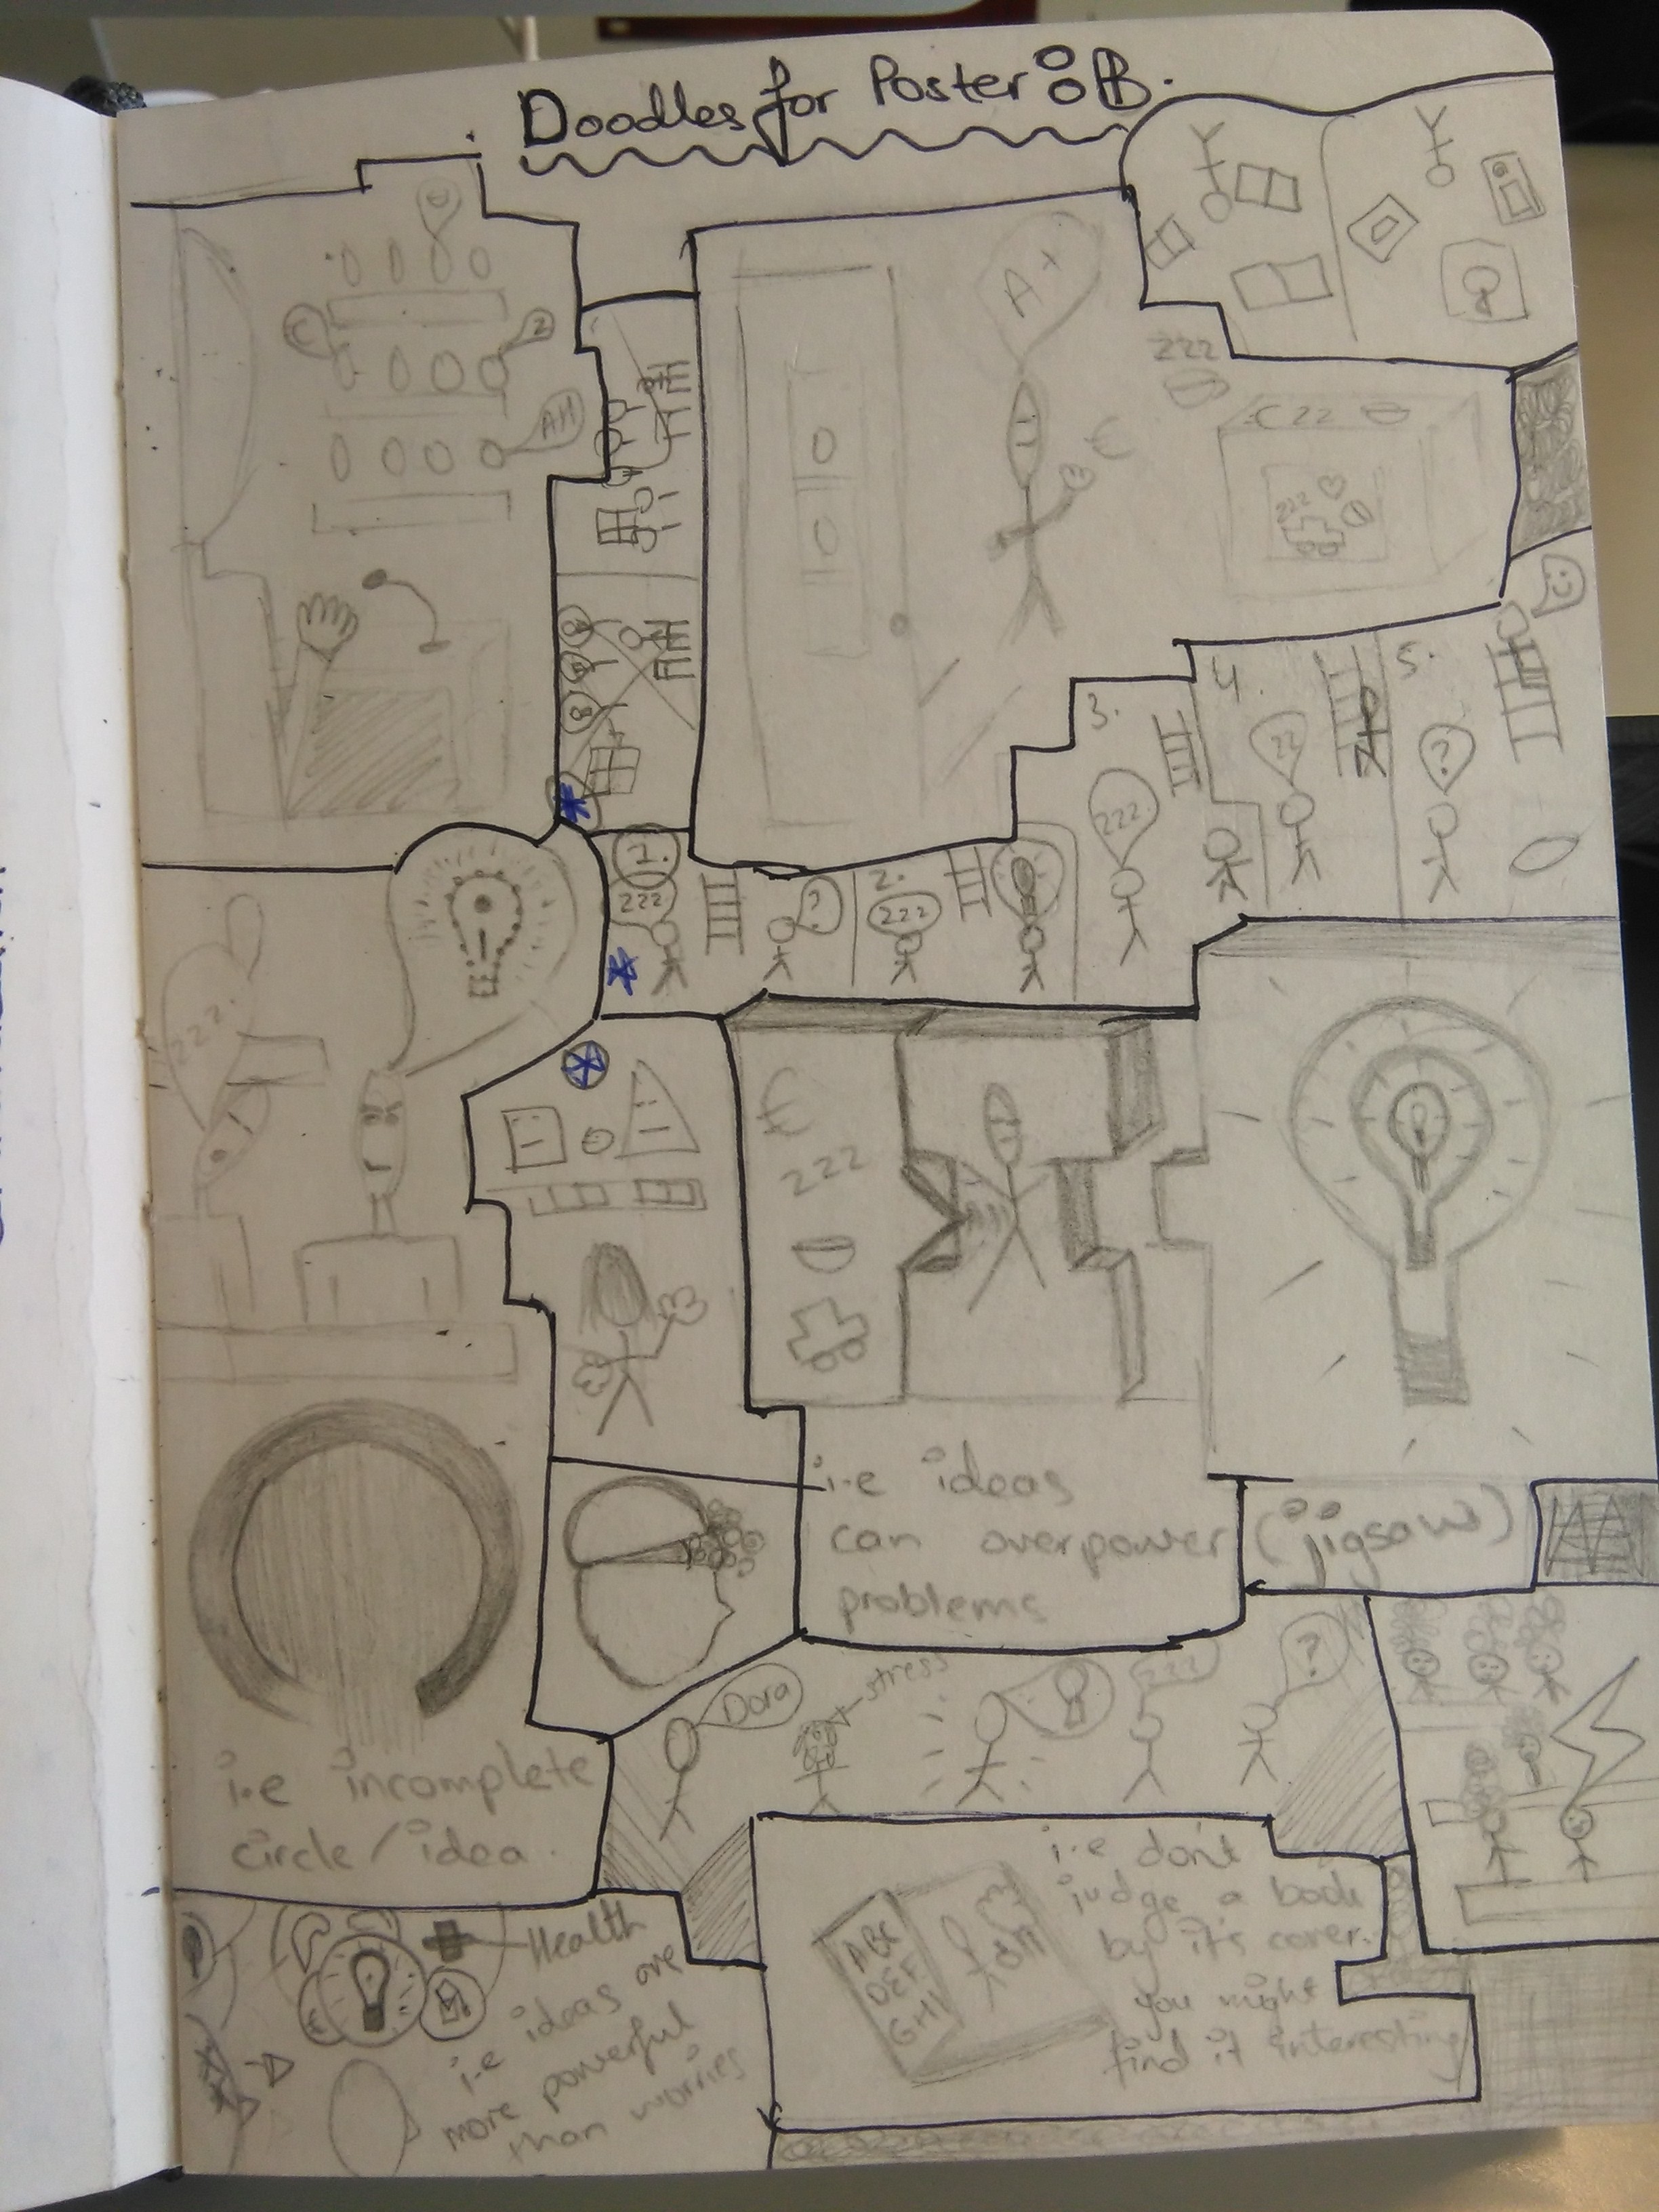 Doodles for Poster
A+
zzz
€
AH
Z
zzz
3.
4.
5.
zzz
zz
?
1.
zzz
?
2.
zzz
zzz.
€
zzz
i.e ideas
can overpower (jigsaw)
problems
Dora
stress
zzz
?
i.e incomplete
circle/idea.
Health
i.e ideas are
more powerful
than worries
ABC
DEF
GHI
i.e don't
judge a book
by it's cover.
you might
find it interesting